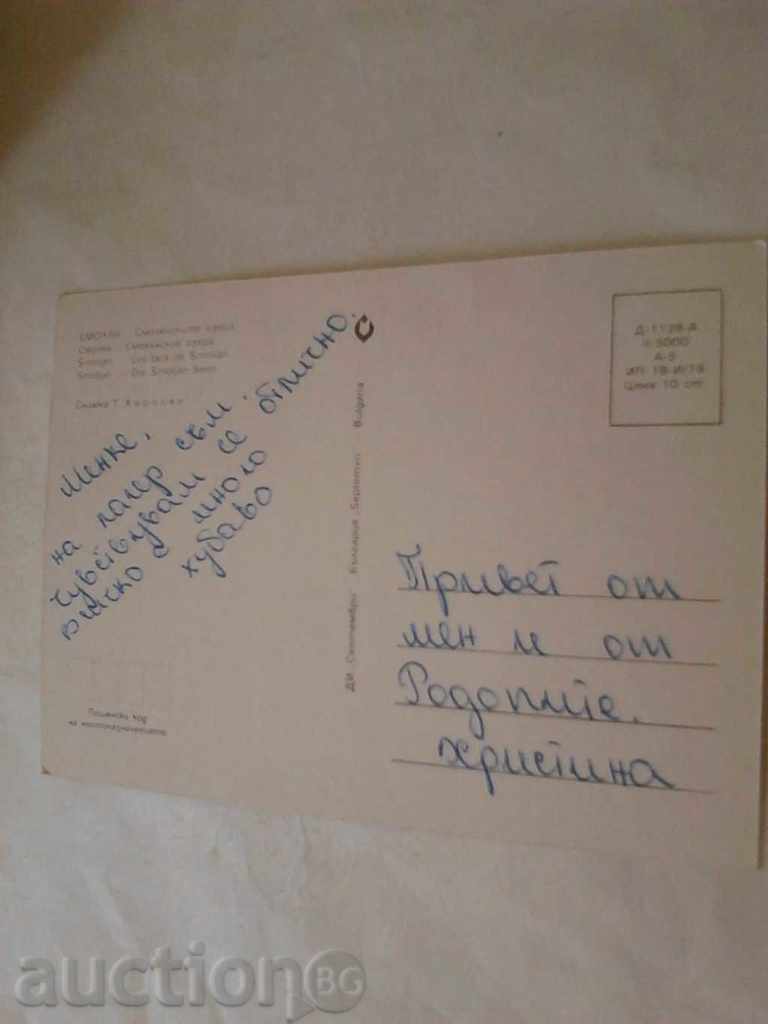 СМОЛЯН — Смолянските езера
Смолян — Смолянские озера
Smoljan — Les lacs de Smoljan
Smoljan — Die Smoljan Seen
Снимка Т.
Минке,
на лагер съм.
Чувствувам се отлично.
всичко е много
хубаво
Пощенски код
на местоназначението
ДИ „Септември“ България „Septemvri“ Bulgaria
Д-1128-А
А-5
Цена 10 ст.
Привет от
мен и от
Родопите.
Християна
auction BG